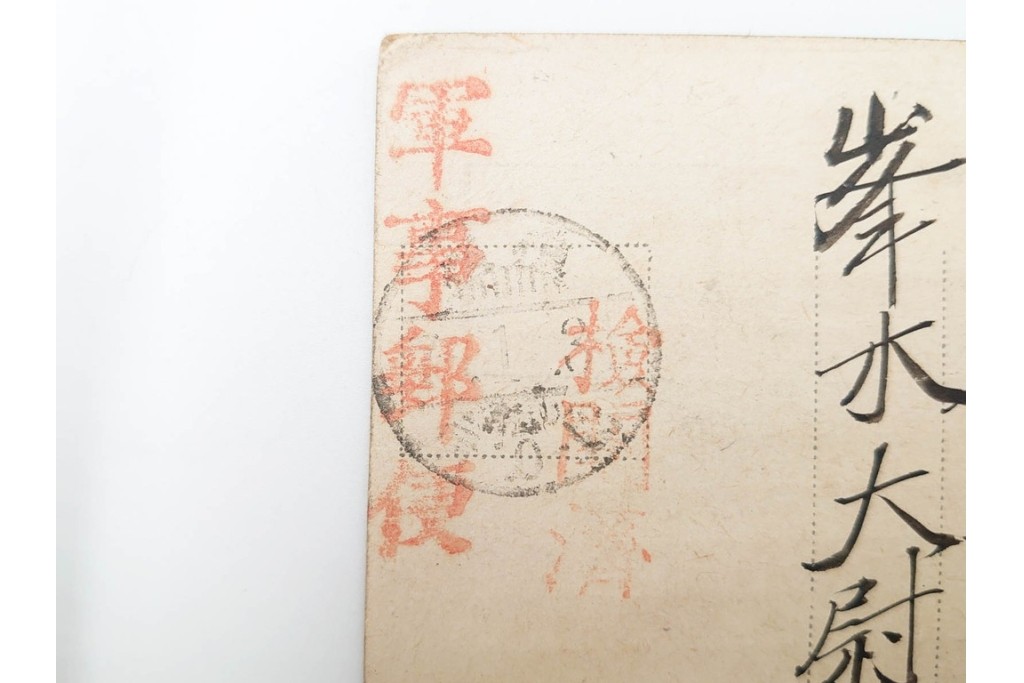 峯水大尉
検閲済
軍事郵便